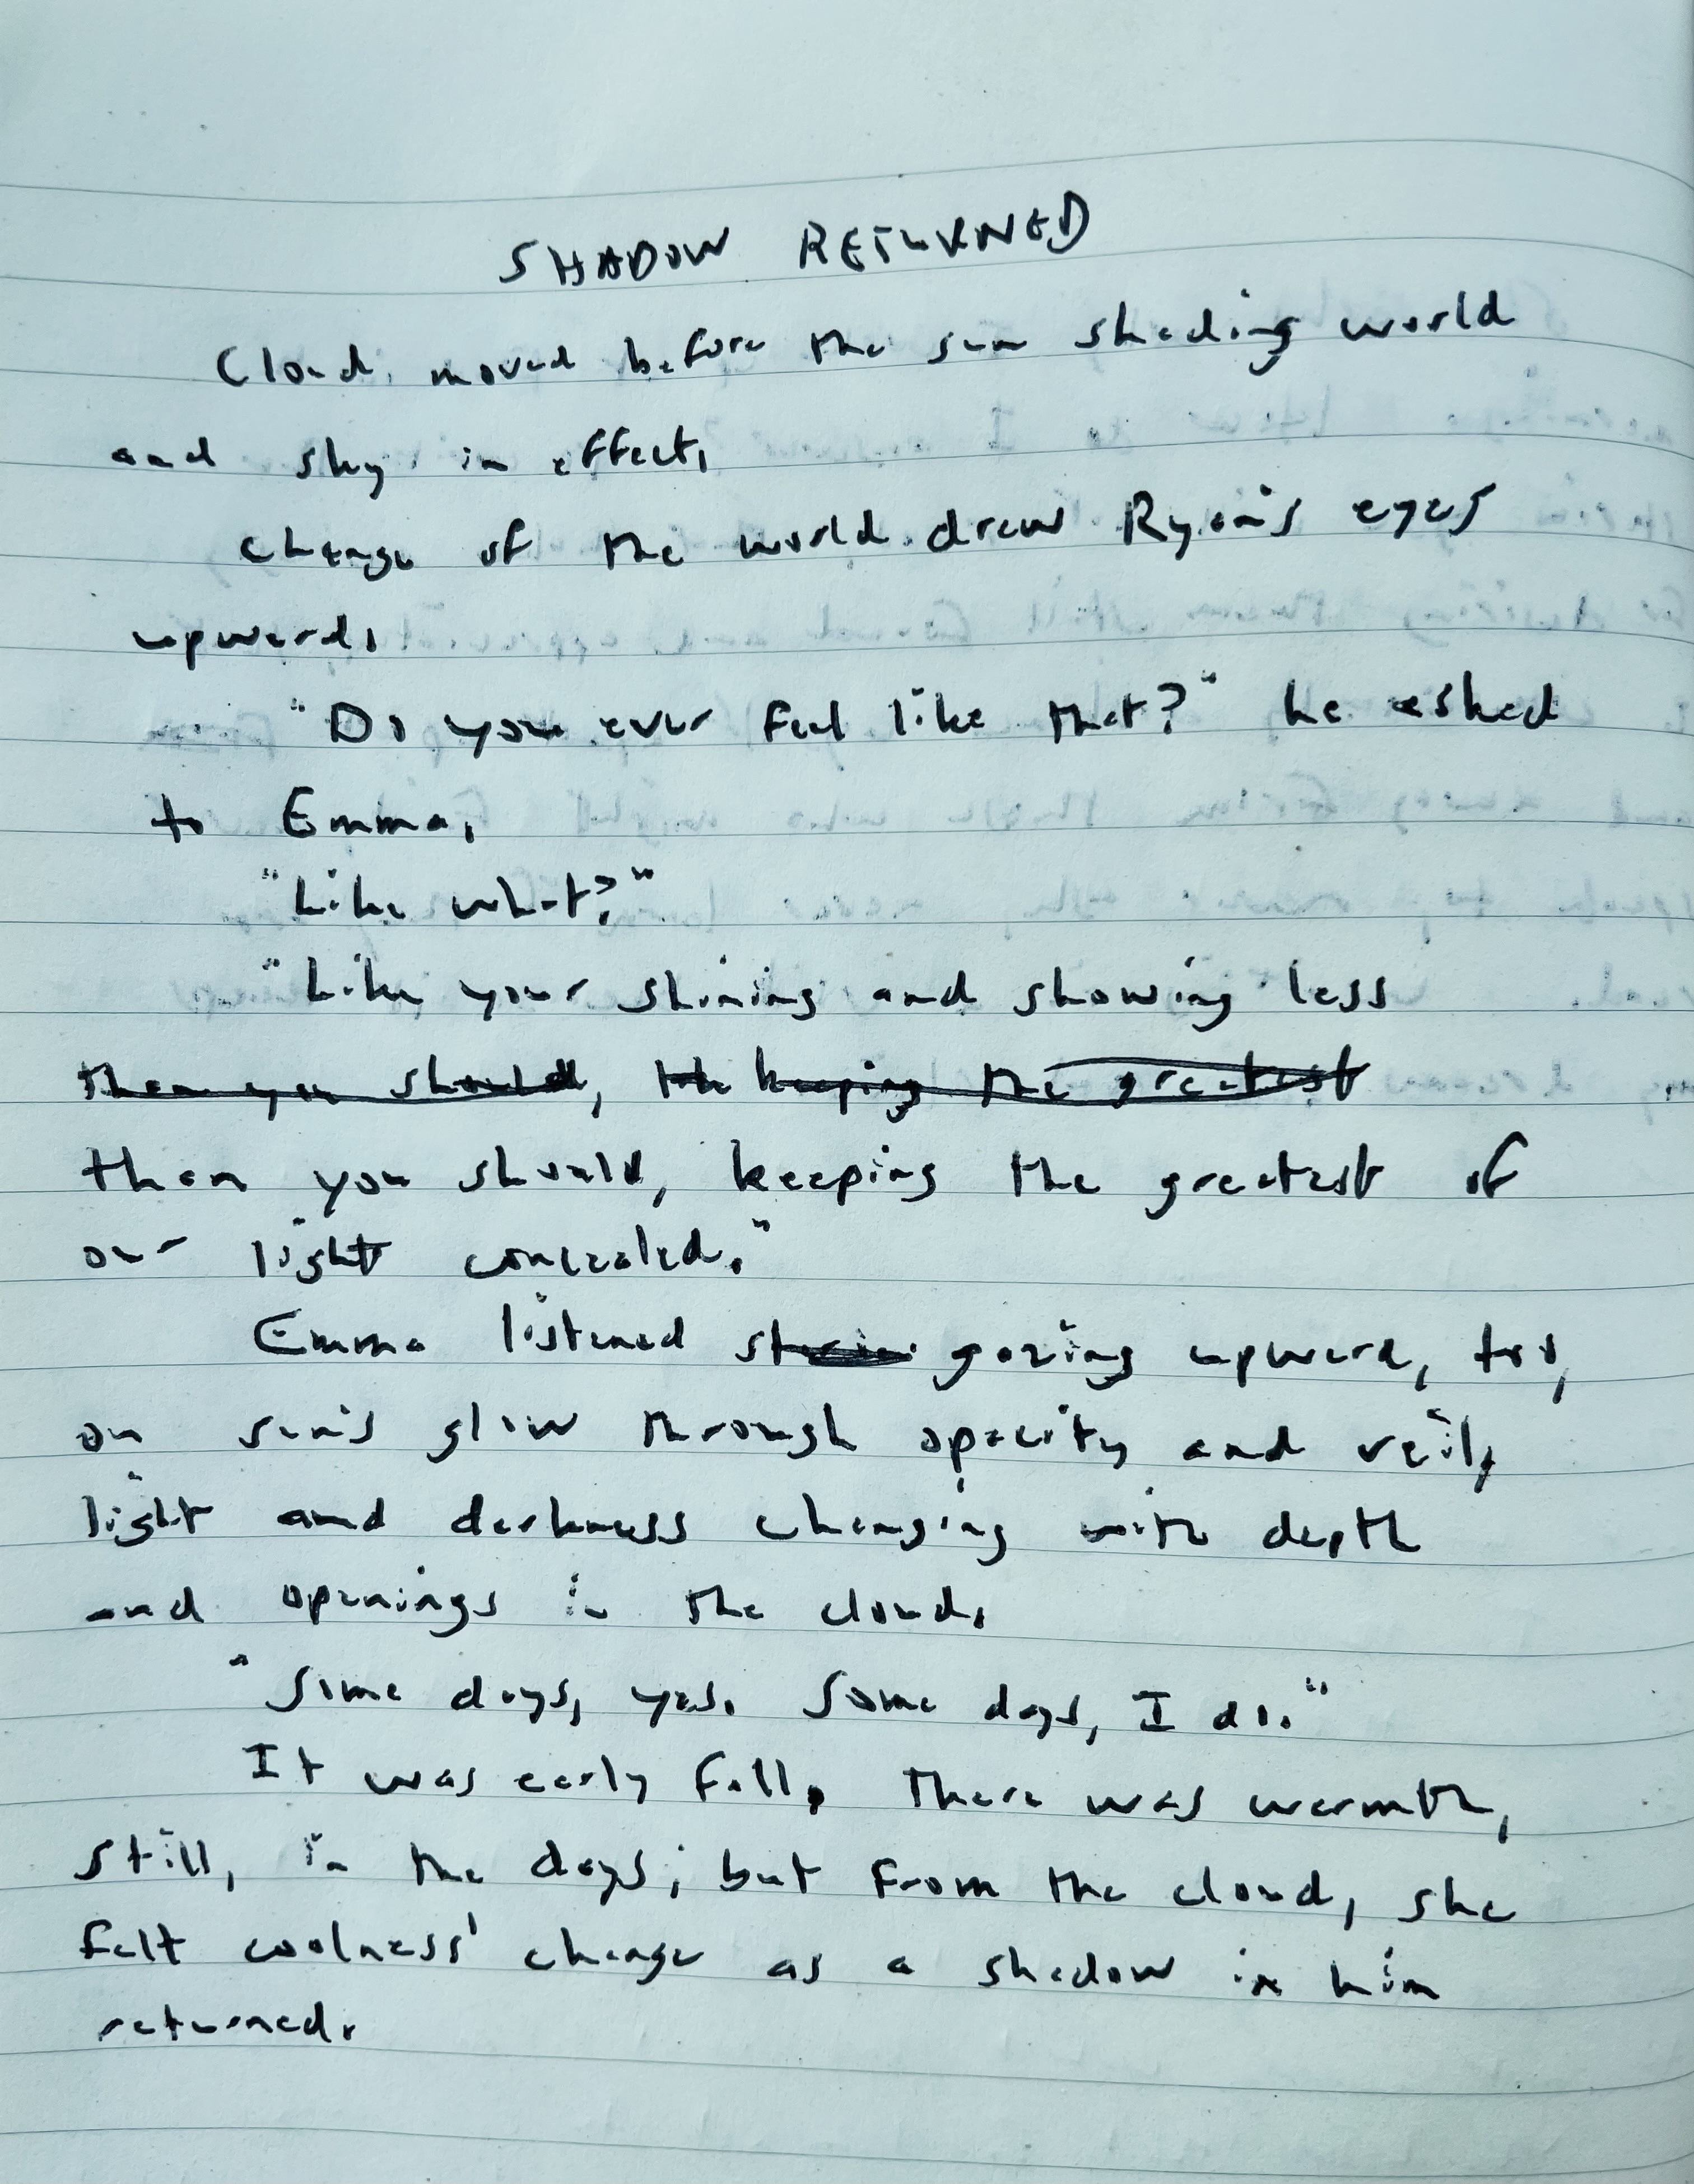 SHADOW RETURNED
Cloud moved before the sun shading world
and sky in effect.
Change of the world drew Ryan's eyes
upward.
"Do you ever feel like that?" he asked
to Emma.
"Like what?"
"Like your shining and showing less
than you should, keeping the greatest
than you should, keeping the greatest of
our light concealed."
Emma listened gazing upward, too,
on sun's glow through opacity and veil,
light and darkness changing with depth
and openings in the cloud.
"Some days, yes. Some days, I do."
It was early fall. There was warmth,
still, in the days; but from the cloud, she
felt coolness' change as a shadow in him
returned.